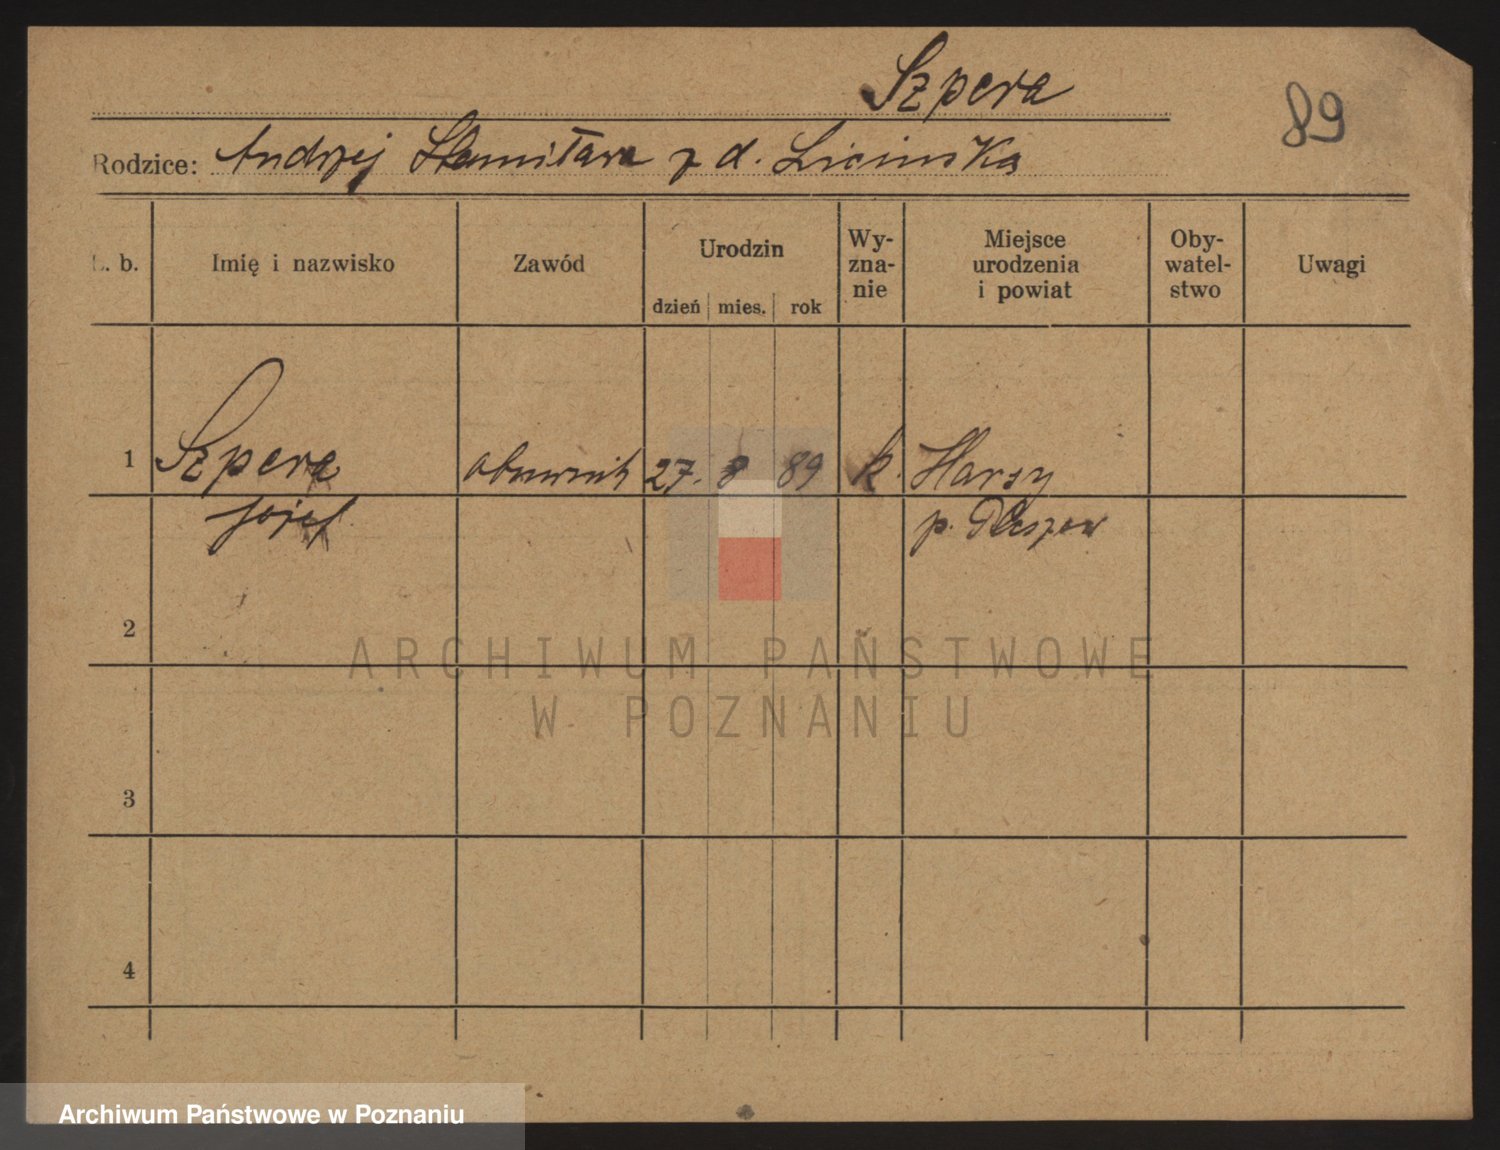 Szpera
89
Rodzice: Andrzej Stanisława z d. Licinska
L. b.
Imię i nazwisko
Zawód
Urodzin
dzień mies. rok
Wy-
zna-
nie
Miejsce
urodzenia
i powiat
Oby-
watel-
stwo
Uwagi
1 Szpera 27. 8 89 k. Harsy
Józef p. Pleszew
2
ARCHIWUM PAŃSTWOWE
W POZNANIU
3
4
Archiwum Państwowe w Poznaniu